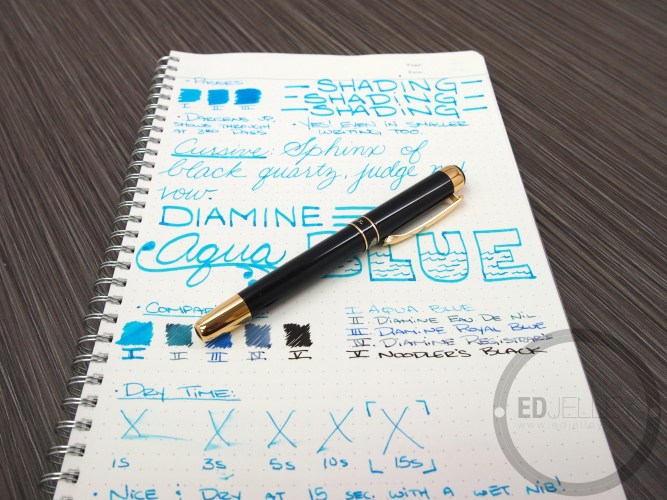 Page:
Date:
· PASSES
= SHADING =
= SHADING =
= SHADING =
I II III
· DARKENS UP,
SHOWS THROUGH
AT 3RD PASS
· YES! EVEN IN SMALLER
WRITING TOO.
Cursive: Sphinx of
black quartz, judge my
vow.
DIAMINE
Aqua BLUE
I AQUA BLUE
II DIAMINE EAU DE NIL
III DIAMINE ROYAL BLUE
IV DIAMINE REGISTRAR'S
V NOODLER'S BLACK
I II III IV V
· DRY TIME:
X X X X X
1s 3s 5s 10s 15s
· NICE & DRY AT 15 SEC. WITH A WET NIB!
EDJELLEY